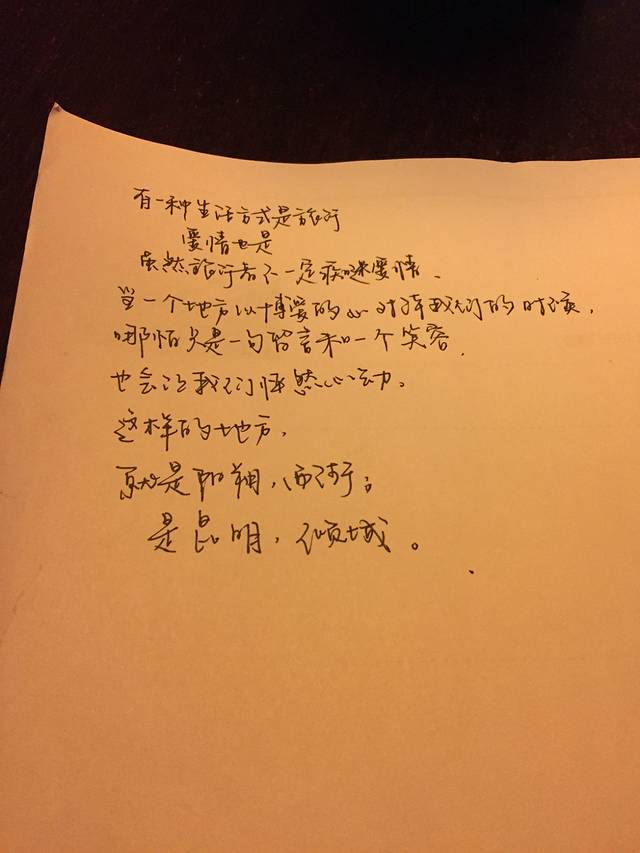 有一种生活方式是旅行
爱情也是
虽然旅行者不一定痴迷爱情、
当一个地方以博爱的心对待我们的时候，
哪怕只是一句留言和一个笑容，
也会让我们怦然心动。
这样的地方，
就是阳朔，西街；
是昆明，倾城。